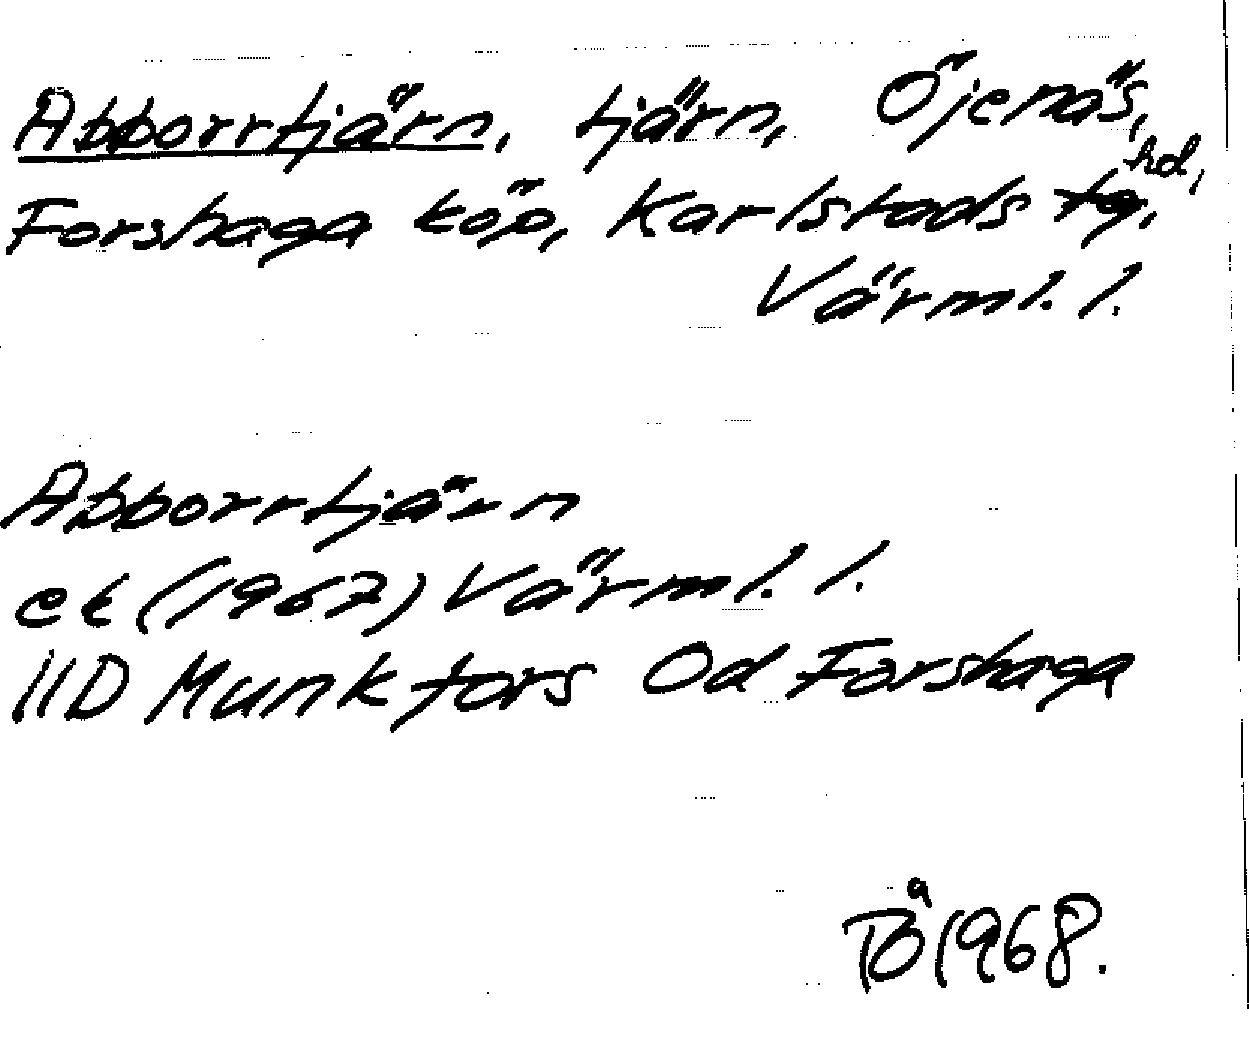 Abborrtjärn, tjärn, Öjenäs,
Forshaga köp, Karlstads hd,
Värml. l.
Abborrtjärn
ek (1967) Värml. l.
11D Munkfors Od Forshaga
1968.